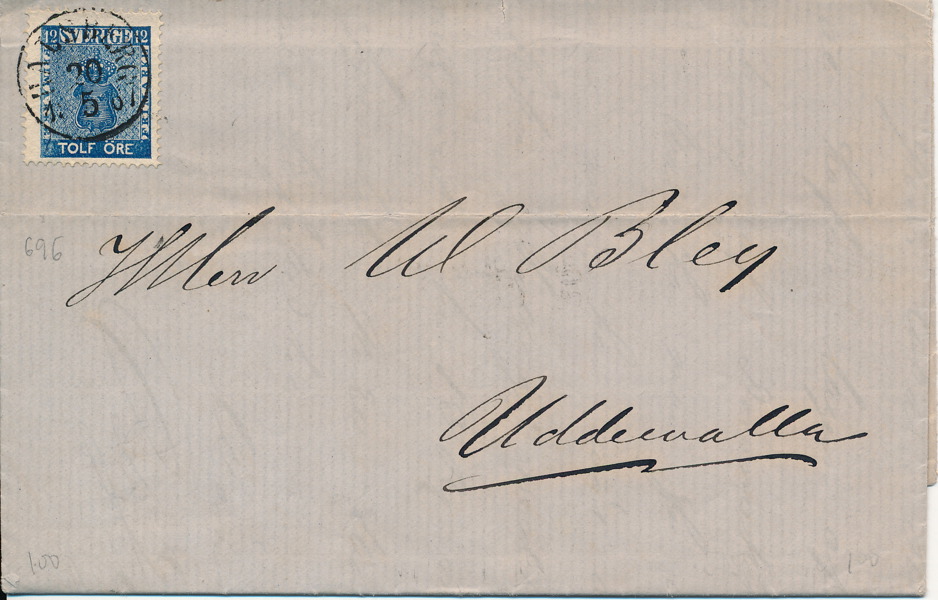 12 SVERIGE 12
20
5
TOLF ÖRE
696
W Bley
Uddewalla
1.00
1.00